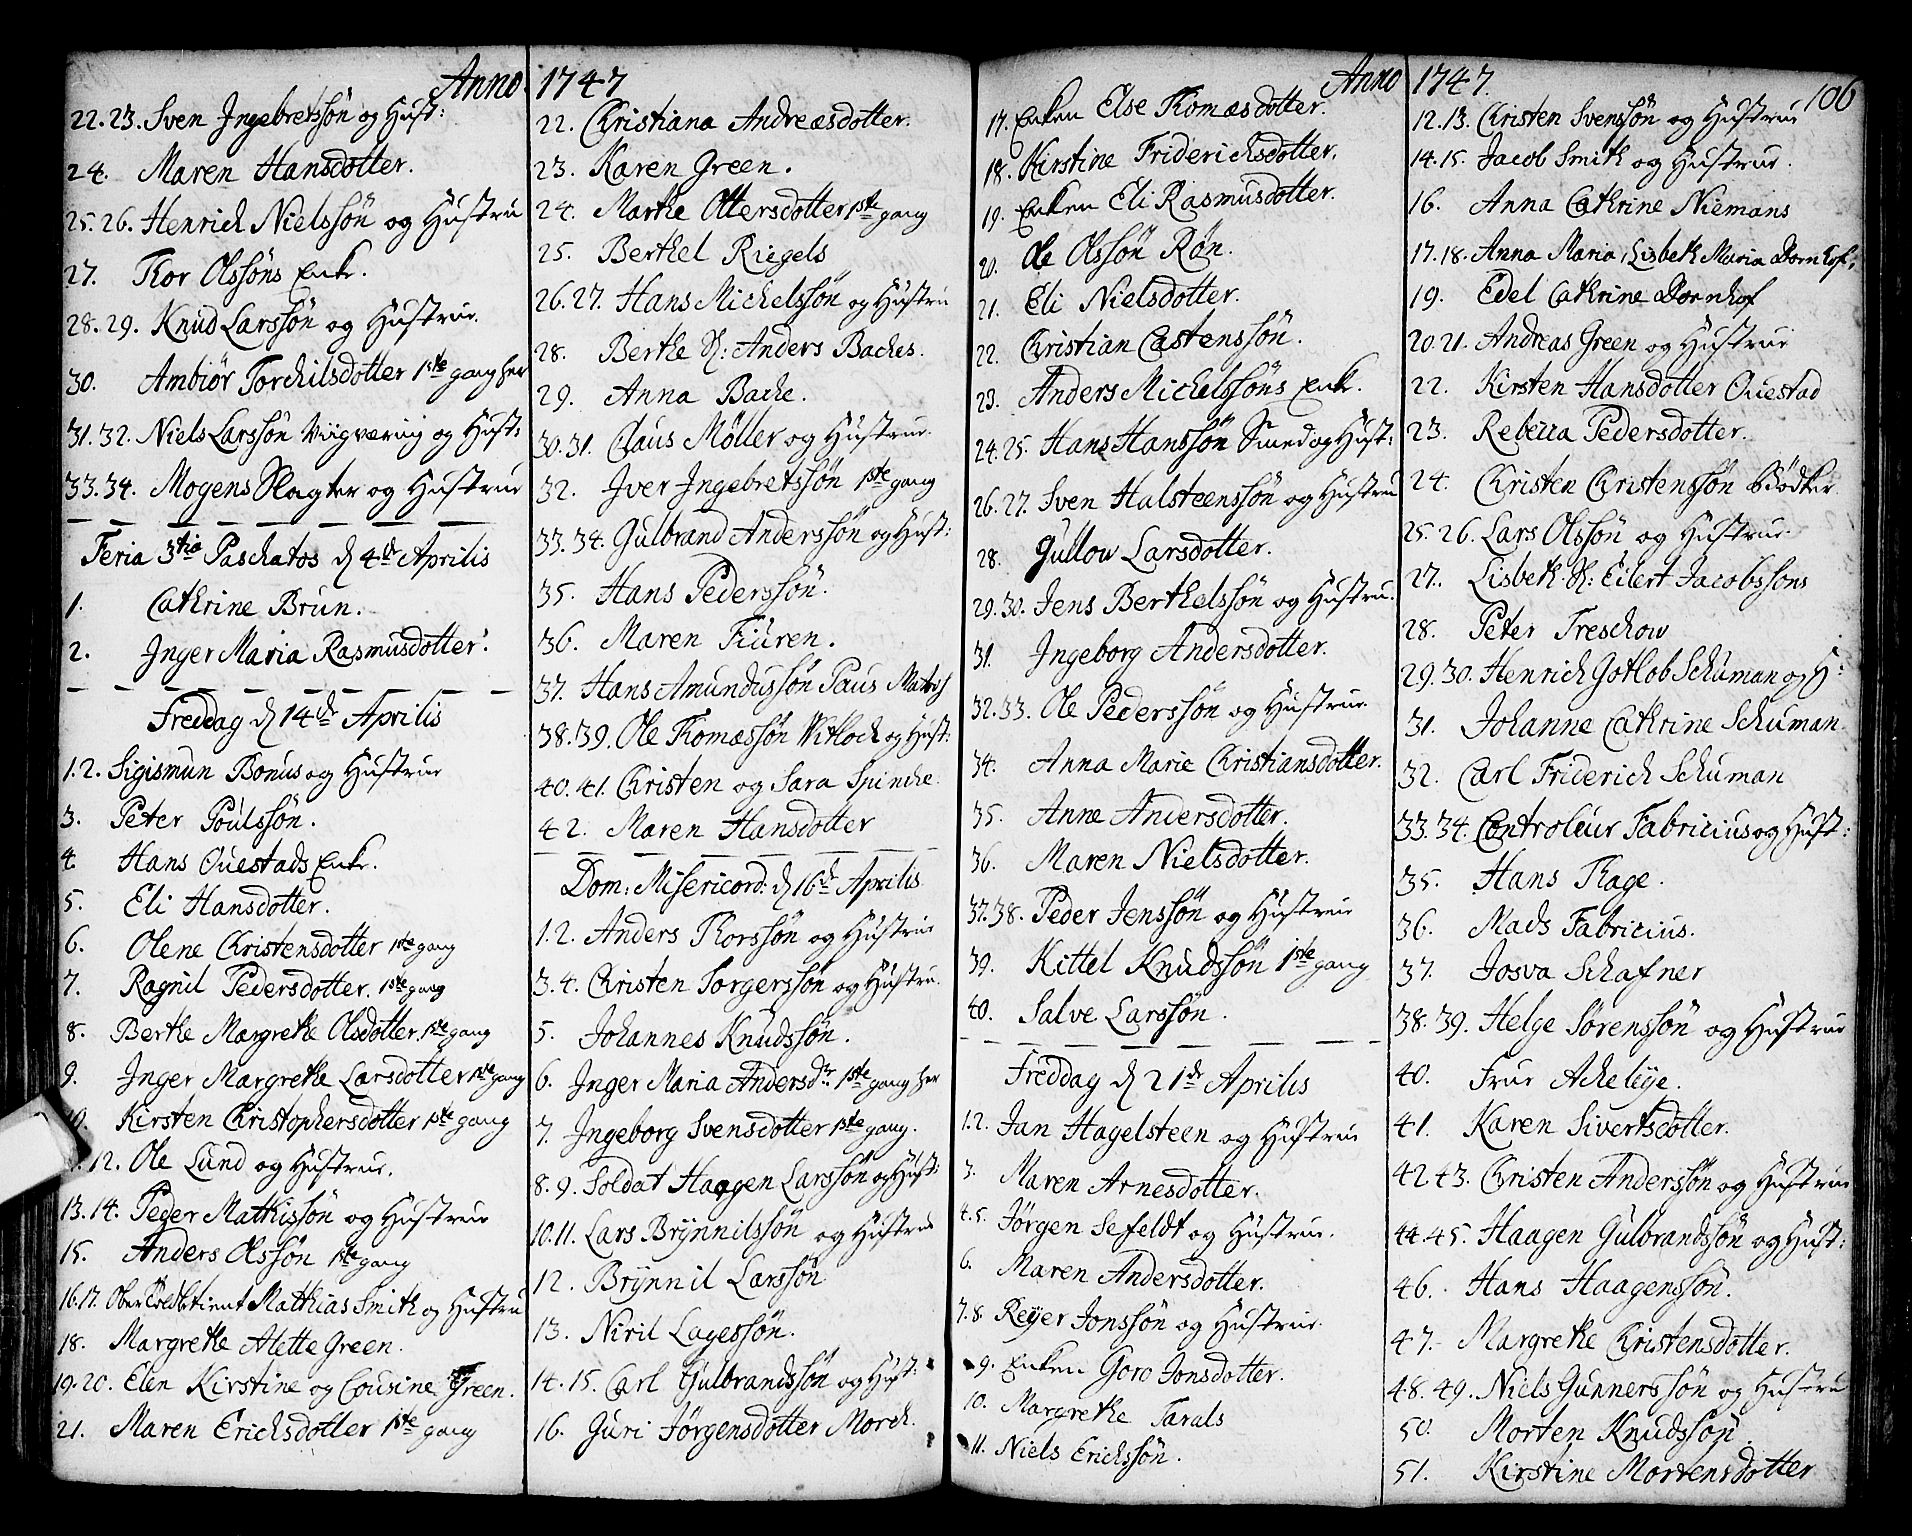 Anno 1747
22.23. Sven Ingebretssøn og Hust:
24. Maren Hansdotter.
25.26. Henrich Nielssøn og Hustru
27. Thor Olssøns Enke.
28.29. Knud Larssøn og Hustrue.
30. Ambiør Torchilsdotter 1ste gang her
31.32. Niels Larssøn og Hust:
33.34. Mogens Slagter og Hustrue
Feria 3tia Paschatos d 4de Aprilis
1. Cathrine Brun.
2. Inger Maria Rasmusdotter.
Freddag d 14de Aprilis
1.2. Sigismun Bonus og Hustrue
3. Peter Poulssøn.
4. Hans Ouestads Enke.
5. Eli Hansdotter.
6. Olene Christensdotter 1ste gang
7. Ragnil Pedersdotter. 1ste gang
8. Berthe Margrethe Olsdotter. 1ste gang
9. Inger Margrethe Larsdotter 1ste gang
10. Kirsten Christophersdotter 1ste gang
11.12. Ole Lund og Hustrue.
13.14. Peder Mathissøn og Hustrue
15. Anders Olssøn 1ste gang
16.17. Mathias Smith og Hustru
18. Margrethe Alette Green.
19.20. Elen Kirstine og Cousine Green.
21. Maren Erichsdotter 1ste gang
22. Christiana Andreæsdotter.
23. Karen Green.
24. Marthe Ottersdotter 1ste gang
25. Berthel Riegels
26.27. Hans Michelssøn og Hustru
28. Berthe H: Anders Baches.
29. Anna Bache.
30.31. Claus Møller og Hustrue.
32. Iver Ingebretssøn 1ste gang
33.34. Gulbrand Anderssøn og Hust:
35. Hans Pederssøn.
36. Maren Fiuren.
37. Hans Amundissøn Paus
38.39. Ole Thomæssøn Witloch og Hust:
40.41. Christen og Sara Spinche.
42. Maren Hansdotter
Dom: Misericord: d 16de Aprilis
1.2. Anders Thorssøn og Hustrue
3.4. Christen Torgerssøn og Hustru.
5. Johannes Knudssøn.
6. Inger Maria Andersdr 1ste gang her
7. Ingeborg Svensdotter 1ste gang.
8.9. Soldat Haagen Larssøn og Hust:
10.11. Lars Brynnilssøn og Hustrue
12. Brynnil Larssøn
13. Niril Lagessøn.
14.15. Carl Gulbrandssøn og Hust:
16. Guri Jørgensdotter Morch.
Anno 1747. 106
17. Enken Else Thomæsdotter.
18. Kirstine Friderichsdotter.
19. Enken Eli Rasmusdotter.
20. Ole Olssøn Røn.
21. Eli Nielsdotter.
22. Christian Castenssøn.
23. Anders Michelssøns Enke.
24.25. Hans Hanssøn Smed og Hust:
26.27. Sven Halsteenssøn og Hustru
28. Gullow Larsdotter.
29.30. Jens Berthelssøn og Hustru.
31. Ingeborg Andersdotter.
32.33. Ole Pederssøn og Hustrue.
34. Anna Marie Christiansdotter.
35. Anne Andersdotter.
36. Maren Nielsdotter.
37.38. Peder Jenssøn og Hustrue
39. Kittel Knudssøn 1ste gang
40. Salve Larssøn.
Freddag d 21de Aprilis
1.2. Jan Hagelsteen og Hustrue
3. Maren Arnesdotter.
4.5. Jørgen Sefeldt og Hustrue.
6. Maren Andersdotter.
7.8. Reyer Jonssøn og Hustrue.
9. Enken Goro Jonsdotter.
10. Margrethe Tarals
11. Niels Erichssøn.
12.13. Christen Svenssøn og Hustrue
14.15. Jacob Smith og Hustrue.
16. Anna Cathrine Niemans
17.18. Anna Maria, Lisbeth Maria Dornhof.
19. Edel Cathrine Dornhof
20.21. Andreas Green og Hustrue
22. Kirsten Hansdotter Ouestad
23. Rebecca Pedersdotter.
24. Christen Christenssøn Bødker.
25.26. Lars Olssøn og Hustrue.
27. Lisbeth H: Eilert Jacobssøns
28. Peter Treschow
29.30. Henrich Gotlob Schuman og H:
31. Johanne Cathrine Schuman
32. Carl Friderich Schuman
33.34. Controleur Fabricius og Hust:
35. Hans Thage.
36. Mads Fabricius.
37. Josva Schafner
38.39. Helge Sørenssøn og Hustrue
40. Frue Acheleye.
41. Karen Sivertsdotter.
42.43. Christen Anderssøn og Hustrue
44.45. Haagen Gulbrandssøn og Hust:
46. Hans Haagenssøn.
47. Margrethe Christensdotter.
48.49. Niels Gunnerssøn og Hustru
50. Morten Knudssøn.
51. Kirstine Mortensdotter